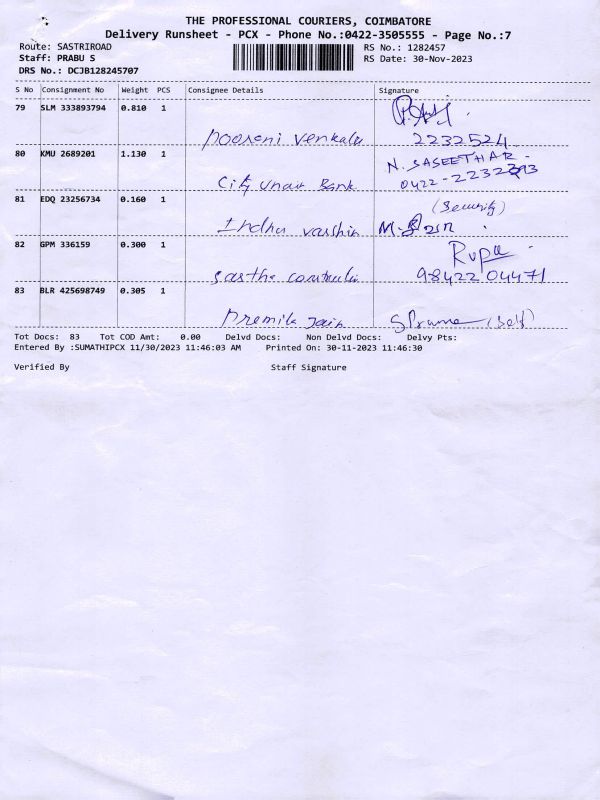 THE PROFESSIONAL COURIERS, COIMBATORE
Delivery Runsheet - PCX - Phone No.:0422-3505555 - Page No.:7
Route: SASTRIROAD RS No.: 1282457
Staff: PRABU S RS Date: 30-Nov-2023
DRS No.: DCJB128245707
S No Consignment No Weight PCS Consignee Details Signature
79 SLM 333893794 0.810 1
Poorani Venkalu 2232524
80 KMU 2689201 1.130 1 N. SASEETHAR
City Unair Bank 0422-2232293
81 EDQ 23256734 0.160 1 (Security)
Indhu varshin
82 GPM 336159 0.300 1 Rupa
Sastha 98422 04471
83 BLR 425698749 0.305 1
Premila Jain (Self)
Tot Docs: 83 Tot COD Amt: 0.00 Delvd Docs: Non Delvd Docs: Delvy Pts:
Entered By :SUMATHIPCX 11/30/2023 11:46:03 AM Printed On: 30-11-2023 11:46:30
Verified By Staff Signature